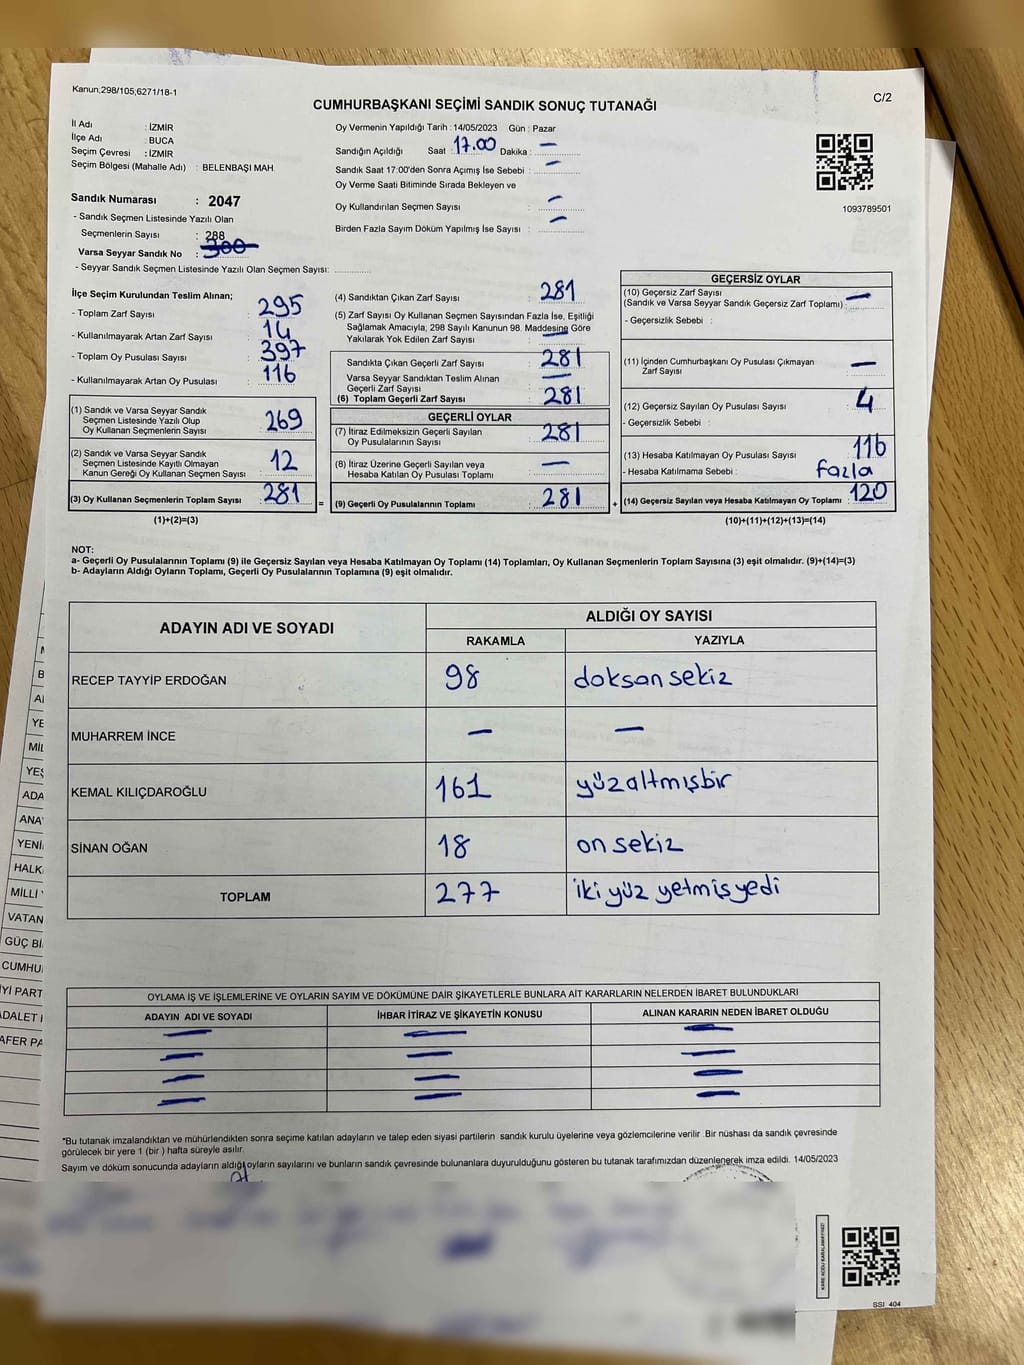 Kanun,298/105,6271/18-1
C/2
CUMHURBAŞKANI SEÇİMİ SANDIK SONUÇ TUTANAĞI
İl Adı : İZMİR
İlçe Adı : BUCA
Seçim Çevresi : İZMİR
Seçim Bölgesi (Mahalle Adı) : BELENBAŞI MAH.
Sandık Numarası : 2047
- Sandık Seçmen Listesinde Yazılı Olan
Seçmenlerin Sayısı : 288
Varsa Seyyar Sandık No : 300
- Seyyar Sandık Seçmen Listesinde Yazılı Olan Seçmen Sayısı:
Oy Vermenin Yapıldığı Tarih : 14/05/2023 Gün : Pazar
Sandığın Açıldığı Saat : 17.00 Dakika : —
Sandık Saat 17:00'den Sonra Açımış İse Sebebi : —
Oy Verme Saati Bitiminde Sırada Bekleyen ve
Oy Kullandırılan Seçmen Sayısı : —
Birden Fazla Sayım Döküm Yapılmış İse Sayısı : —
1093789501
İlçe Seçim Kurulundan Teslim Alınan;
- Toplam Zarf Sayısı : 295
- Kullanılmayarak Artan Zarf Sayısı : 14
- Toplam Oy Pusulası Sayısı : 397
- Kullanılmayarak Artan Oy Pusulası : 116
(1) Sandık ve Varsa Seyyar Sandık
Seçmen Listesinde Yazılı Olup
Oy Kullanan Seçmenlerin Sayısı : 269
(2) Sandık ve Varsa Seyyar Sandık
Seçmen Listesinde Kayıtlı Olmayan
Kanun Gereği Oy Kullanan Seçmen Sayısı : 12
(3) Oy Kullanan Seçmenlerin Toplam Sayısı : 281 =
(1)+(2)=(3)
(4) Sandıktan Çıkan Zarf Sayısı : 281
(5) Zarf Sayısı Oy Kullanan Seçmen Sayısından Fazla İse, Eşitliği
Sağlamak Amacıyla, 298 Sayılı Kanunun 98. Maddesine Göre
Yakılarak Yok Edilen Zarf Sayısı : —
Sandıkta Çıkan Geçerli Zarf Sayısı : 281
Varsa Seyyar Sandıktan Teslim Alınan
Geçerli Zarf Sayısı : —
(6) Toplam Geçerli Zarf Sayısı : 281
GEÇERLİ OYLAR
(7) İtiraz Edilmeksizin Geçerli Sayılan
Oy Pusulalarının Sayısı : 281
(8) İtiraz Üzerine Geçerli Sayılan veya
Hesaba Katılan Oy Pusulası Toplamı : —
(9) Geçerli Oy Pusulalarının Toplamı : 281 +
GEÇERSİZ OYLAR
(10) Geçersiz Zarf Sayısı : —
(Sandık ve Varsa Seyyar Sandık Geçersiz Zarf Toplamı)
- Geçersizlik Sebebi :
(11) İçinden Cumhurbaşkanı Oy Pusulası Çıkmayan
Zarf Sayısı : —
(12) Geçersiz Sayılan Oy Pusulası Sayısı : 4
- Geçersizlik Sebebi :
(13) Hesaba Katılmayan Oy Pusulası Sayısı : 116
- Hesaba Katılmama Sebebi : fazla
(14) Geçersiz Sayılan veya Hesaba Katılmayan Oy Toplamı : 120
(10)+(11)+(12)+(13)=(14)
NOT:
a- Geçerli Oy Pusulalarının Toplamı (9) ile Geçersiz Sayılan veya Hesaba Katılmayan Oy Toplamı (14) Toplamları, Oy Kullanan Seçmenlerin Toplam Sayısına (3) eşit olmalıdır. (9)+(14)=(3)
b- Adayların Aldığı Oyların Toplamı, Geçerli Oy Pusulalarının Toplamına (9) eşit olmalıdır.
ADAYIN ADI VE SOYADI ALDIĞI OY SAYISI
RAKAMLA YAZIYLA
RECEP TAYYİP ERDOĞAN 98 doksan sekiz
MUHARREM İNCE — —
KEMAL KILIÇDAROĞLU 161 yüzaltmışbir
SİNAN OĞAN 18 on sekiz
TOPLAM 277 iki yüz yetmiş yedi
OYLAMA İŞ VE İŞLEMLERİNE VE OYLARIN SAYIM VE DÖKÜMÜNE DAİR ŞİKAYETLERLE BUNLARA AİT KARARLARIN NELERDEN İBARET BULUNDUKLARI
ADAYIN ADI VE SOYADI İHBAR İTİRAZ VE ŞİKAYETİN KONUSU ALINAN KARARIN NEDEN İBARET OLDUĞU
— — —
— — —
— — —
— — —
*Bu tutanak imzalandıktan ve mühürlendikten sonra seçime katılan adayların ve talep eden siyasi partilerin sandık kurulu üyelerine veya gözlemcilerine verilir .Bir nüshası da sandık çevresinde
görülecek bir yere 1 (bir ) hafta süreyle asılır.
Sayım ve döküm sonucunda adayların aldığı oyların sayılarını ve bunların sandık çevresinde bulunanlara duyurulduğunu gösteren bu tutanak tarafımızdan düzenlenerek imza edildi. 14/05/2023
YE
MİL
YEŞ
ADA
ANA
YENİ
HALK
MİLLİ
VATAN
GÜÇ Bİ
CUMHU
İYİ PART
ADALET
AFER PA
KARE KODU KARALAMAYINIZ!
SSI 404